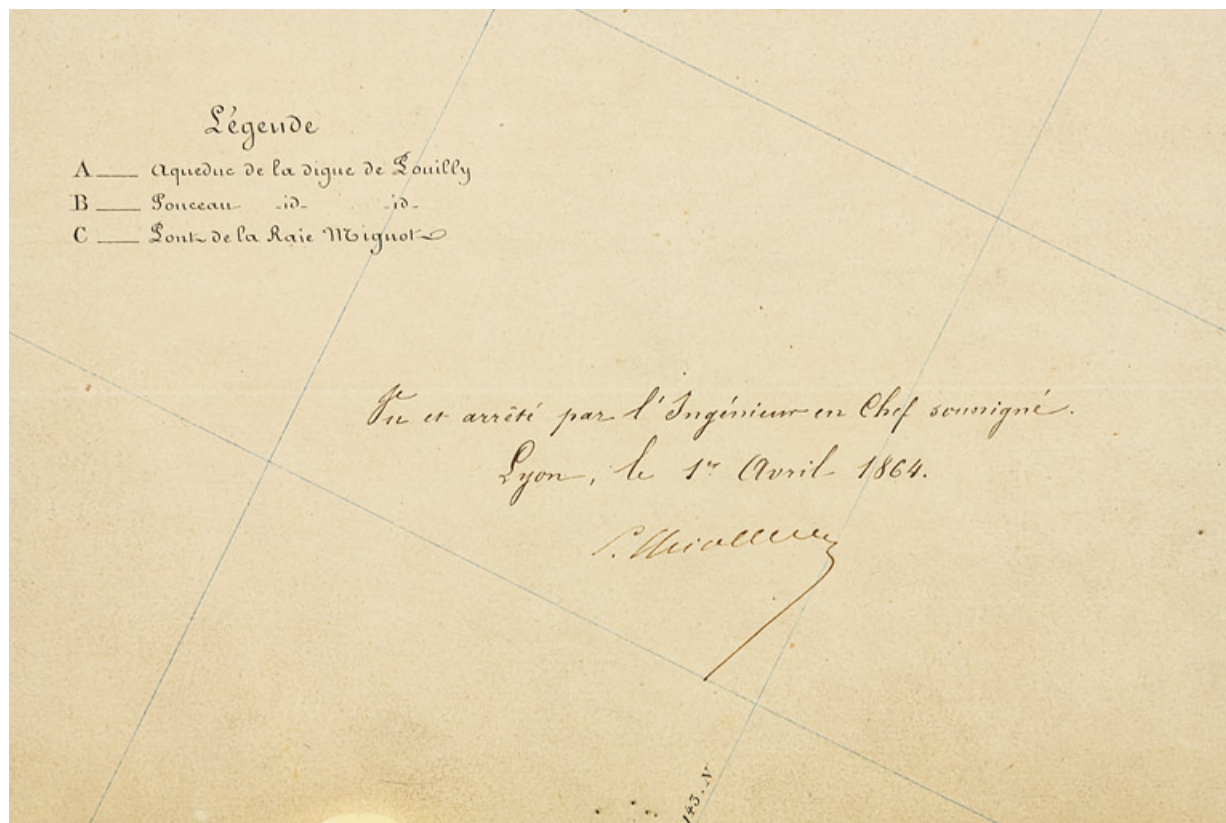 Légende
A ___ Aqueduc de la digue de Pouilly
B ___ Ponceau -id- -id-
C ___ Pont de la Raie Mignot
Vu et arrêté par l'Ingénieur en Chef soussigné.
Lyon, le 1er Avril 1864.
143. N